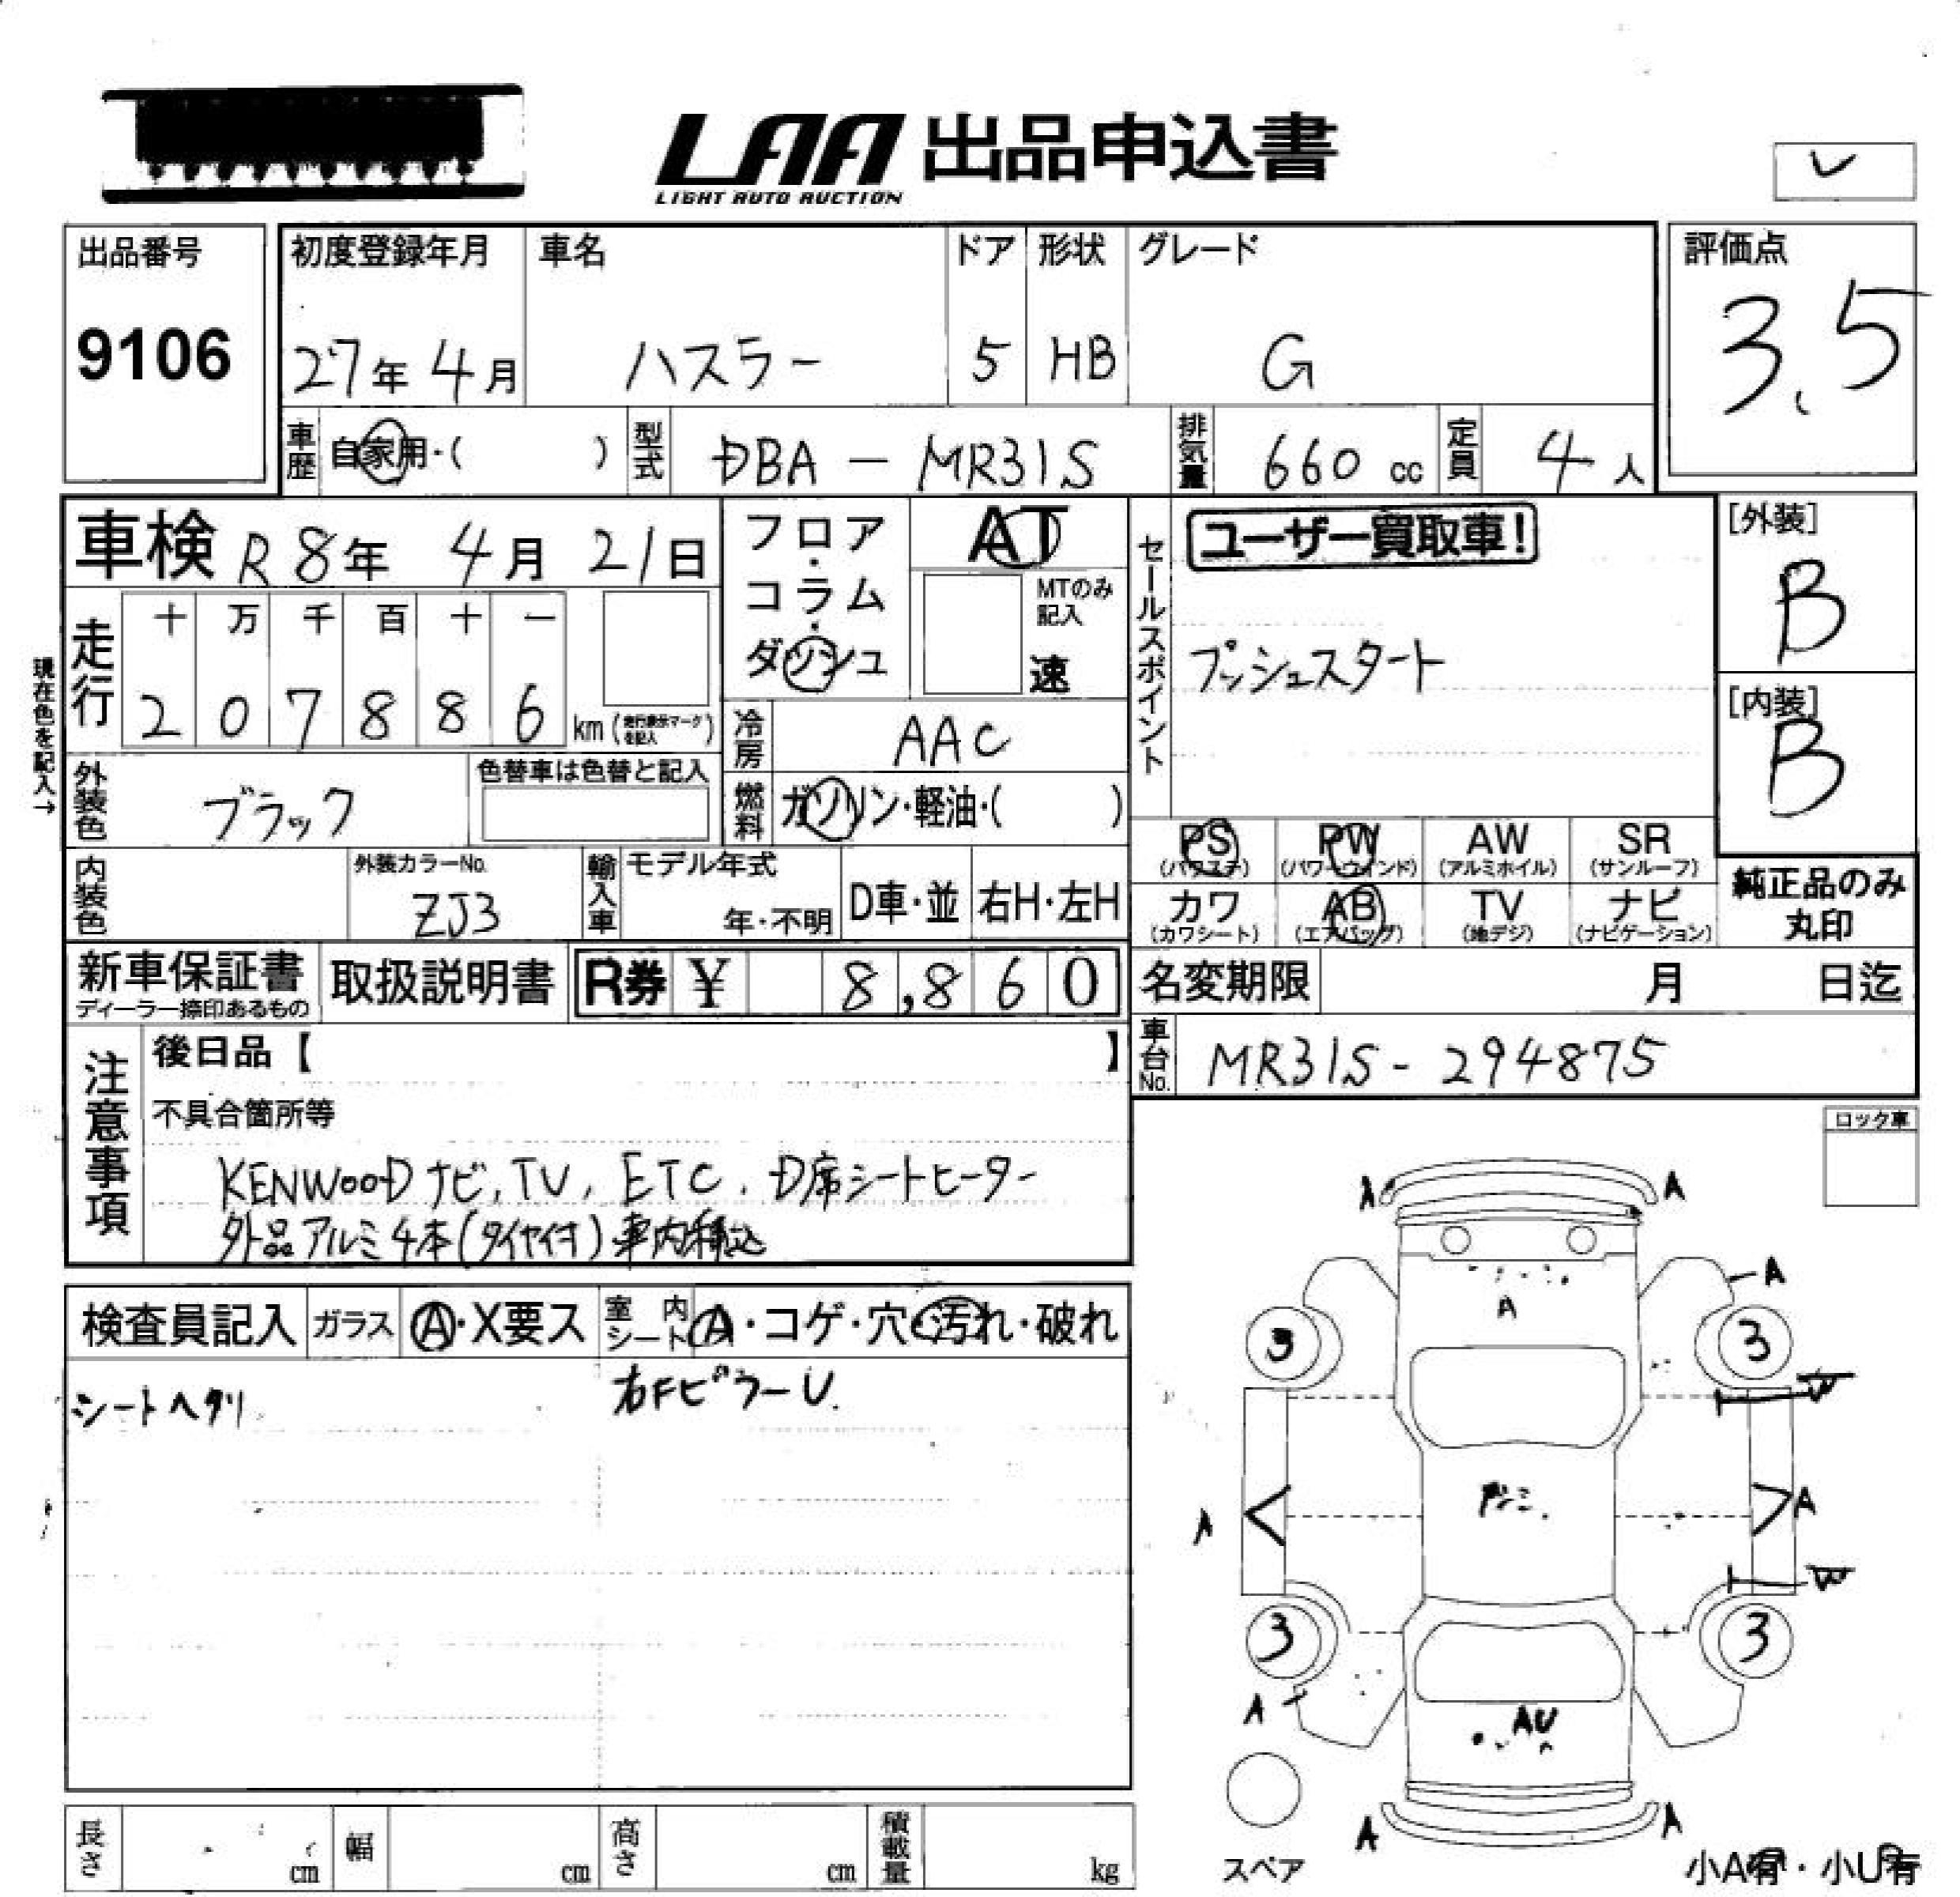 LAA 出品申込書
LIGHT AUTO AUCTION
レ
出品番号
9106
初度登録年月
27年 4月
車名
ハスラー
ドア
5
形状
HB
グレード
G
評価点
3.5
車歴 自家用・( )
型式 DBA - MR31S
排気量 660 cc
定員 4人
車検 R8年 4月 21日
フロア・コラム・ダッシュ
AT
MTのみ記入
速
セールスポイント
ユーザー買取車!
プッシュスタート
[外装]
B
[内装]
B
現在色を記入→
走行
十 万 千 百 十 一
2 0 7 8 8 6 km (走行表示マークを記入)
冷房 AAC
外装色 ブラック
色替車は色替と記入
燃料 ガソリン・軽油・( )
PS (パワステ) PW (パワーウインド) AW (アルミホイル) SR (サンルーフ)
カワ (カワシート) AB (エアバッグ) TV (地デジ) ナビ (ナビゲーション)
純正品のみ丸印
内装色
外装カラーNo.
ZJ3
輸入車
モデル年式
年・不明
D車・並
右H・左H
新車保証書
ディーラー捺印あるもの
取扱説明書
R券 ¥ 8,860
名変期限 月 日迄
車台No. MR31S - 294875
注意事項
後日品【 】
不具合箇所等
KENWOODナビ, TV, ETC, D席シートヒーター
外品アルミ4本(タイヤ付)車内積込
ロック車
検査員記入
ガラス Ⓐ・X要ス
室内シート A・コゲ・穴・汚れ・破れ
シートヘタリ
右FピラーU.
A A
A
A
3 3
W
A A
W
3 3
A
AU
A A
スペア
小A有・小U有
長さ cm
幅 cm
高さ cm
積載量 kg